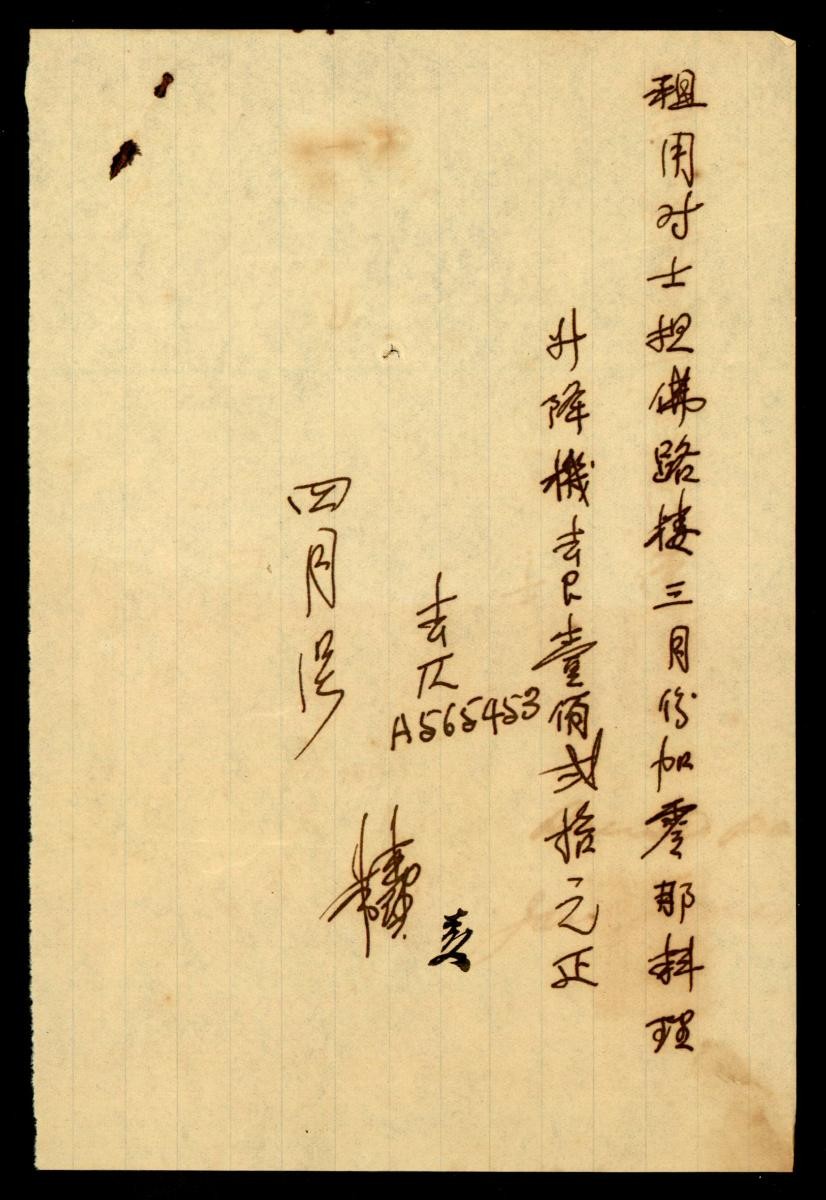 租用对士担佛路楼三月份加零那料理
升降機去艮壹佰弍拾元正
去仄
A565453
四月